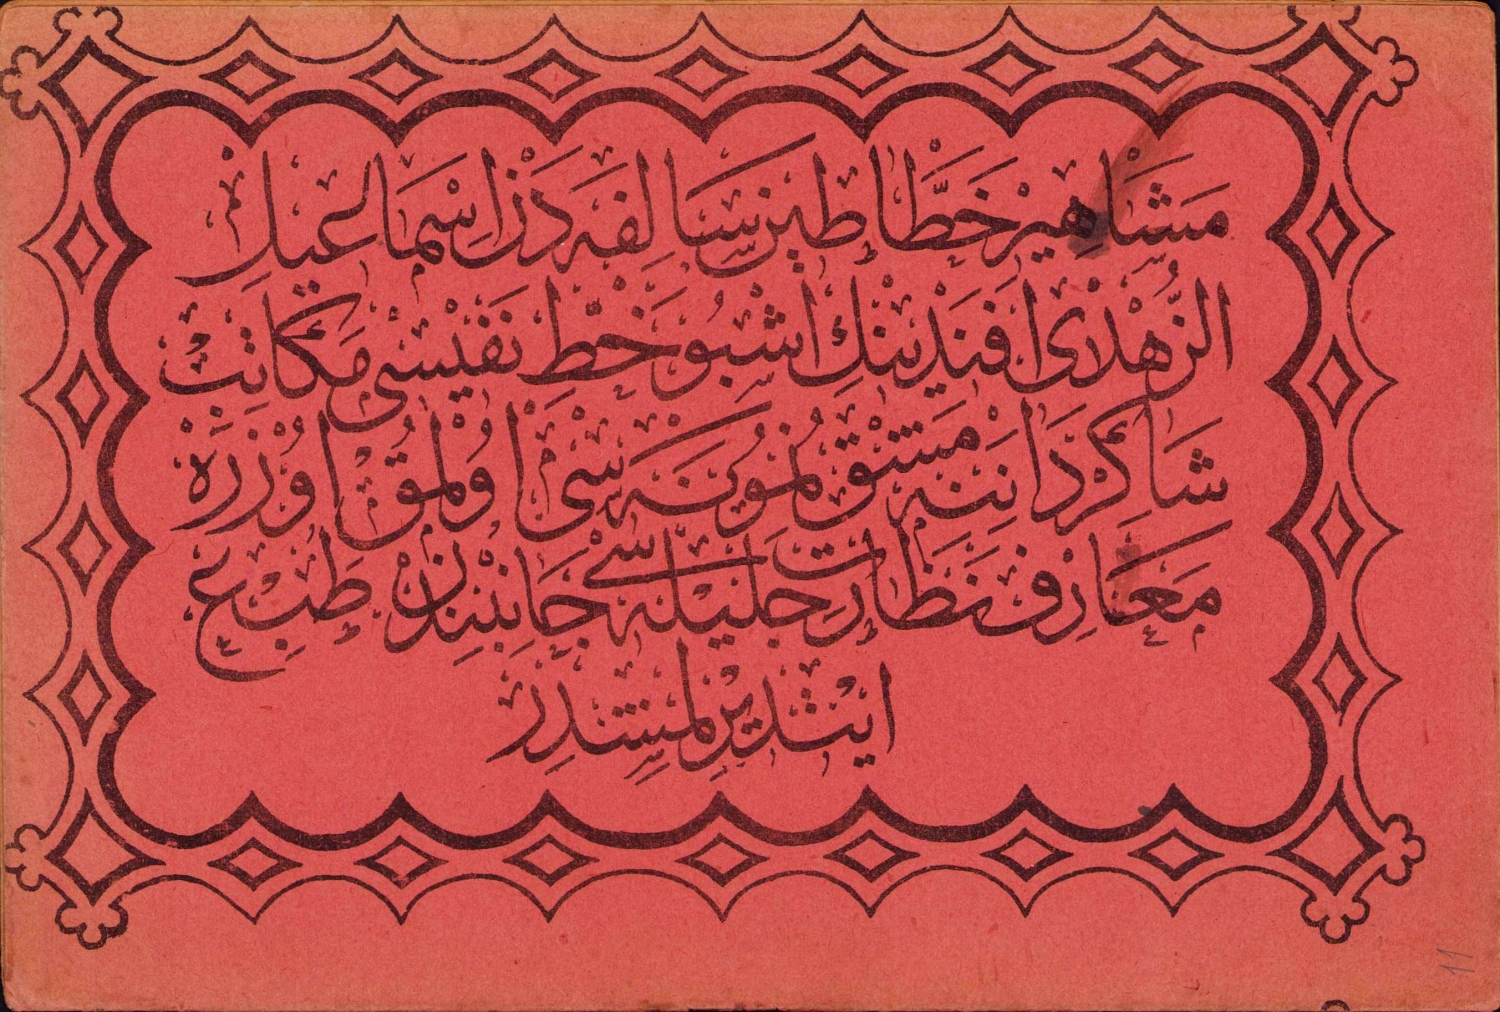 مشاهير خطاطين سالفه‌دن اسماعيل
الزهدى افندينك اشبو خط نفيسى مكاتب
شاكرداننه مشق نمونه‌سى اولمق اوزره
معارف نظارت جليله‌سى جانبندن طبع
ايتديرلمشدر
11